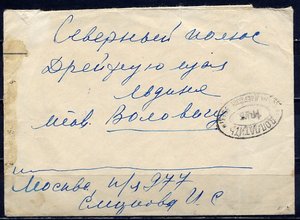 Северный полюс
Дрейфующая
льдина
тов. Воловичу
Москва п/я 977
Смирнова И С